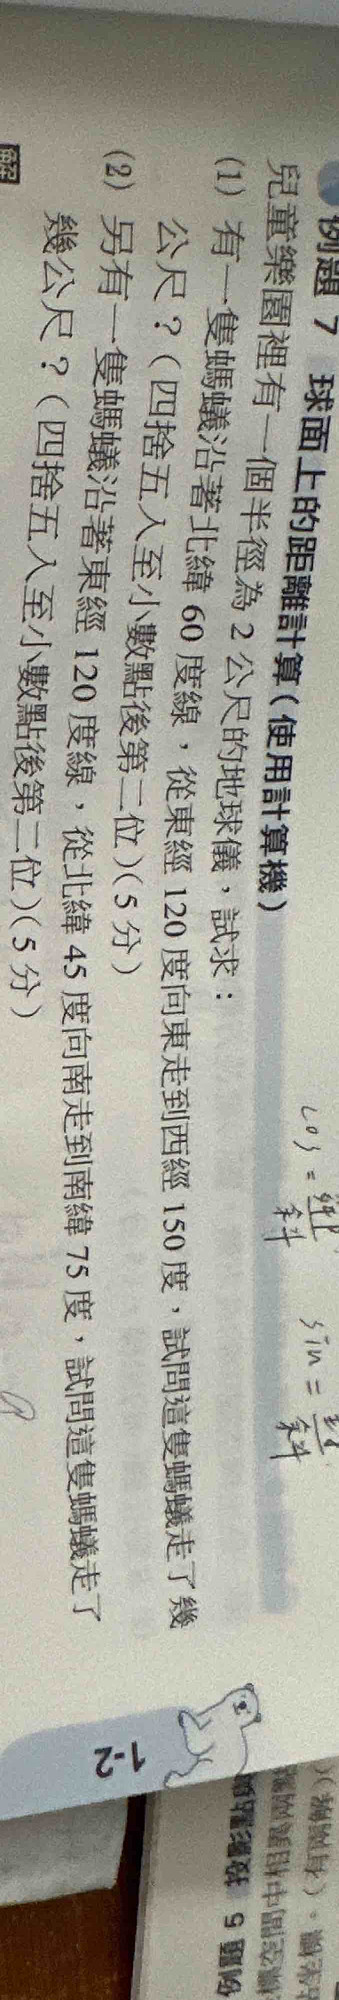 例題 7 球面上的距離計算(使用計算機)
兒童樂園裡有一個半徑為 2 公尺的地球儀,試求:
(1) 有一隻螞蟻沿著北緯 60 度線,從東經 120 度向東走到西經 150 度,試問這隻螞蟻走了幾
公尺?(四捨五入至小數點後第二位)(5 分)
(2) 另有一隻螞蟻沿著東經 120 度線,從北緯 45 度向南走到南緯 75 度,試問這隻螞蟻走了
幾公尺?(四捨五入至小數點後第二位)(5 分)
解
cos = 鄰/斜 sin = 對/斜
1-2
例題 5